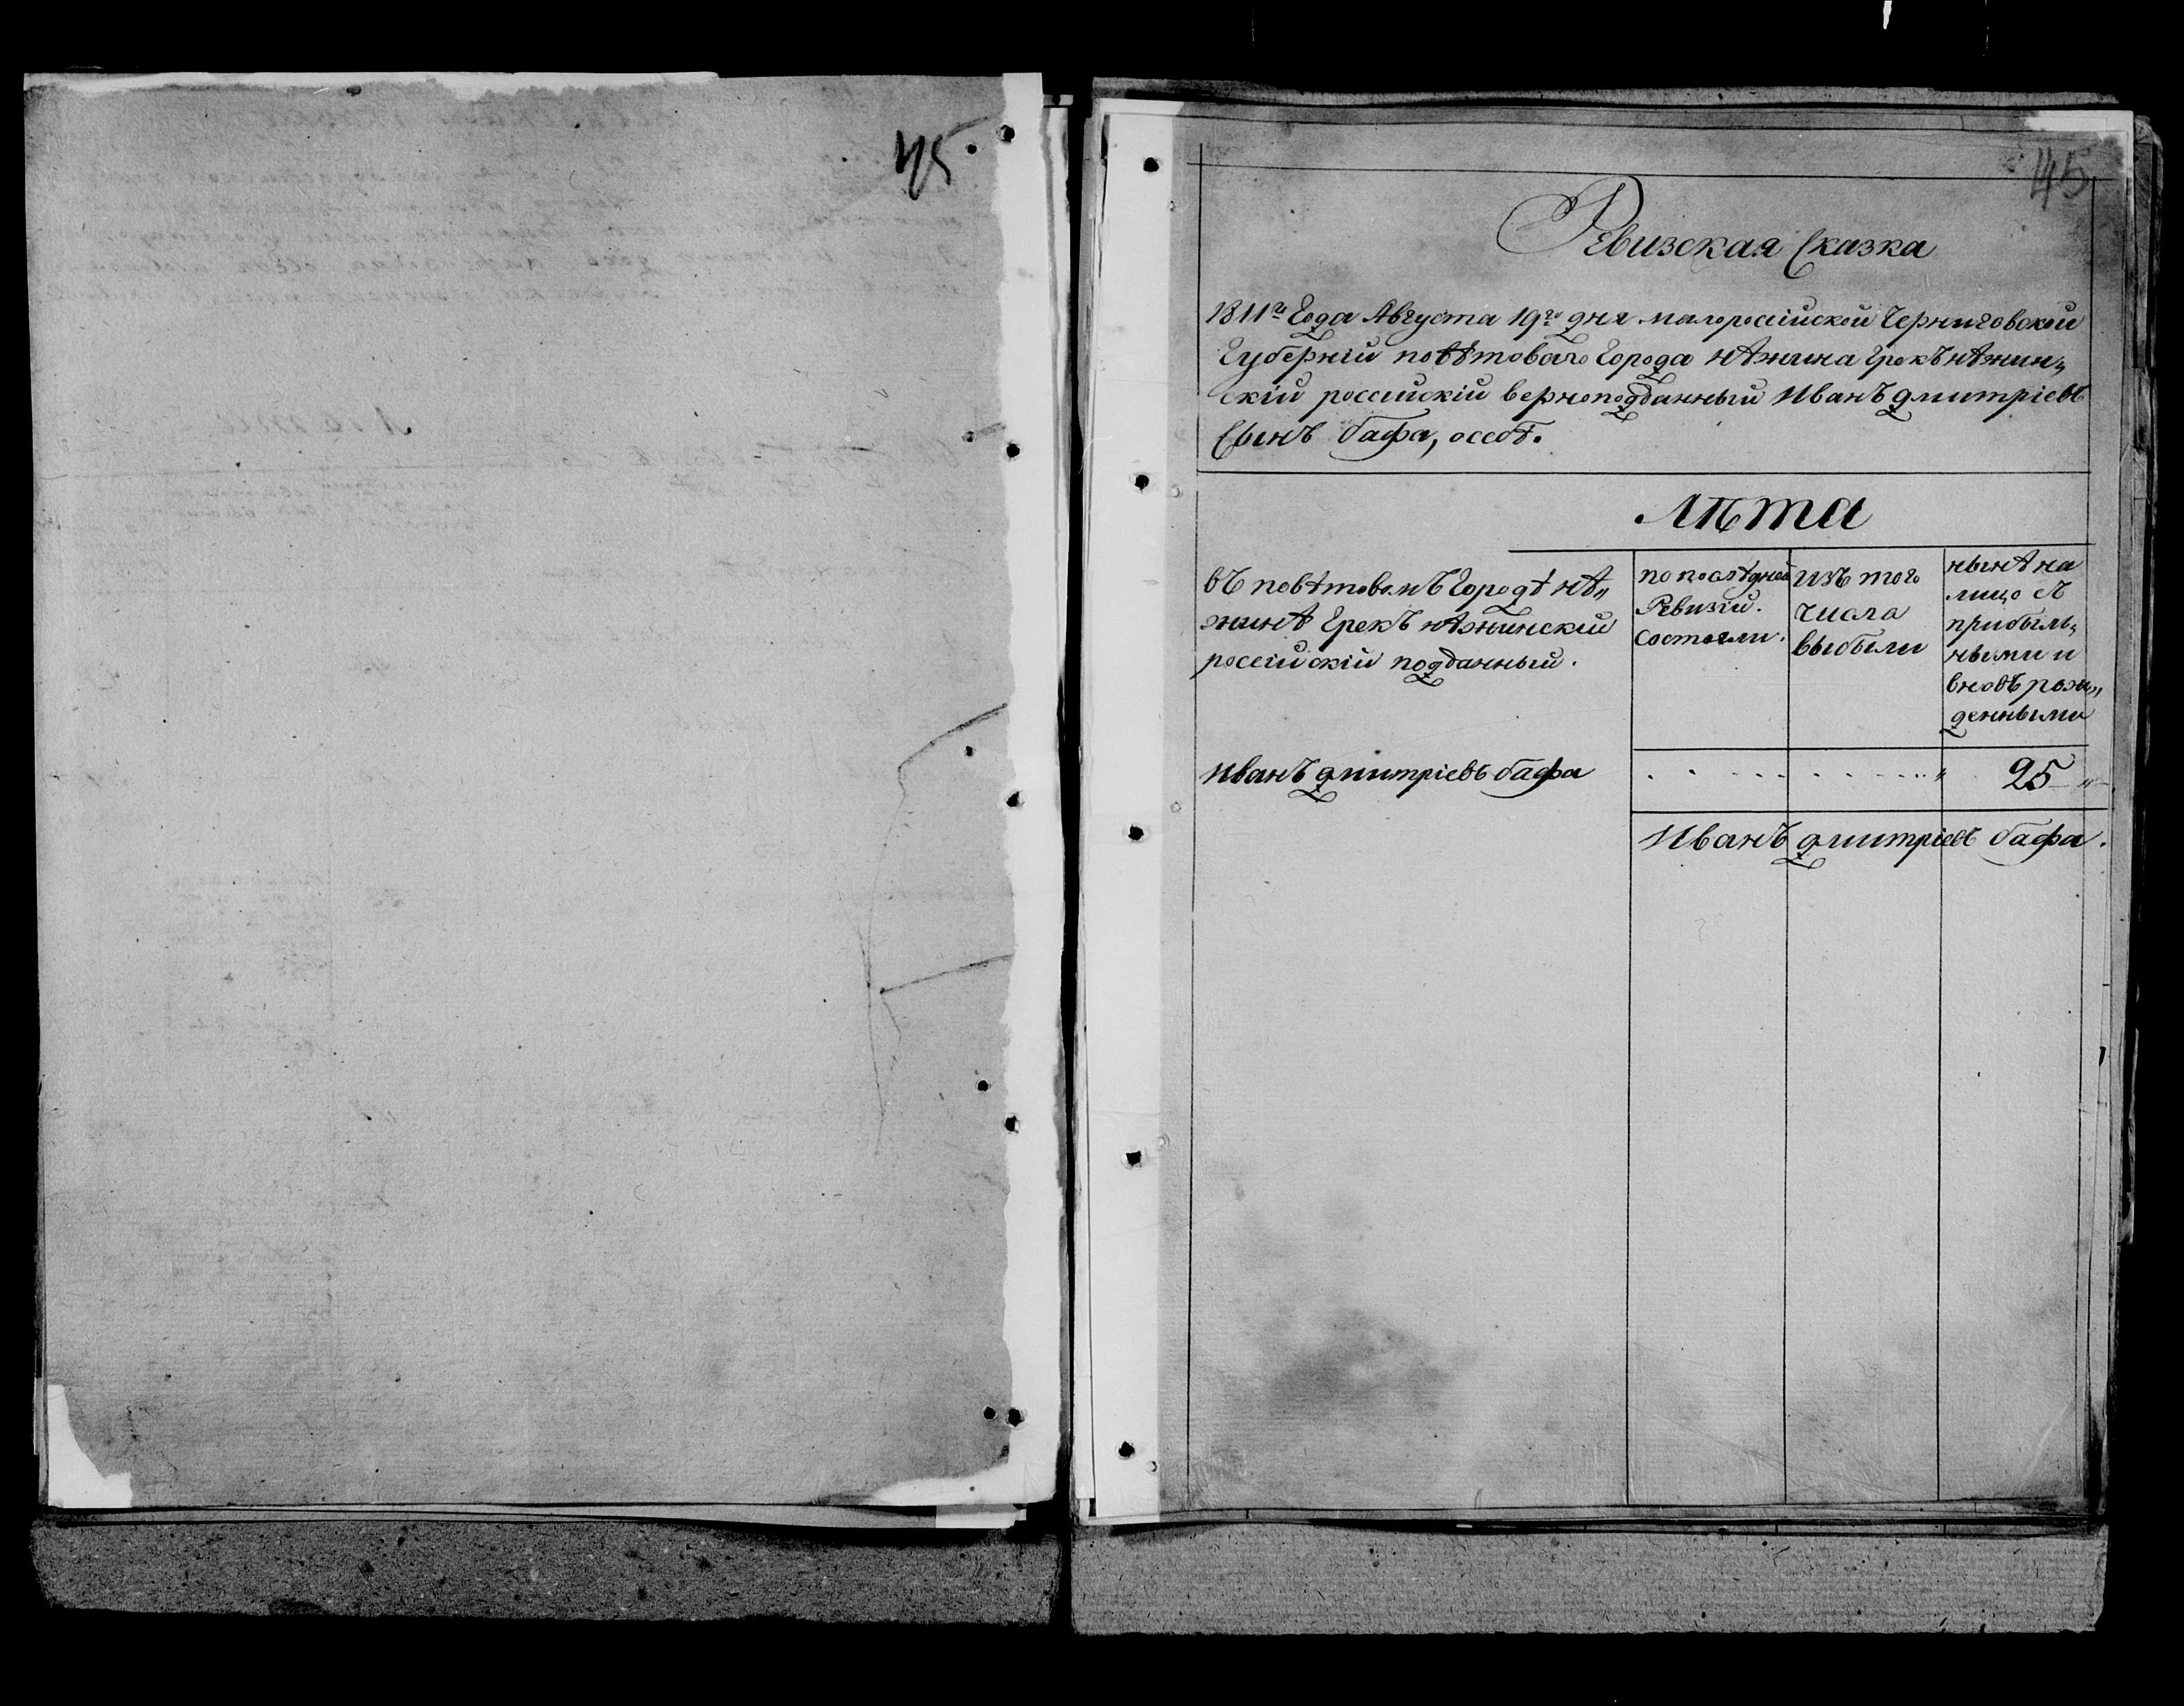 45
45
Ревизская Сказка
1811го Года Августа 19го дня малороссійской Черниговской
Губерніи повѣтоваго Города нѣжина Грекъ нѣжин„
скій россійскій верноподданный Иванъ дмитріевъ
Сынъ бафа,
Лѣта
въ повѣтовомъ Городѣ нѣ„
жинѣ Грекъ нѣжинскій
россійскій подданный.
по последней
Ревизіи.
состояли.
изъ того
числа
выбыли
нынѣ на
лицо съ
прибыль„
ными и
вновь рож„
денными
Иванъ дмитріевъ бафа
25
Иванъ дмитріевъ бафа.